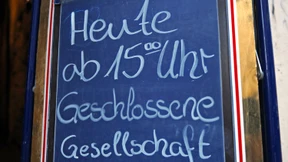 Heute
ab 15⁰⁰ Uhr
Geschlossene
Gesellschaft